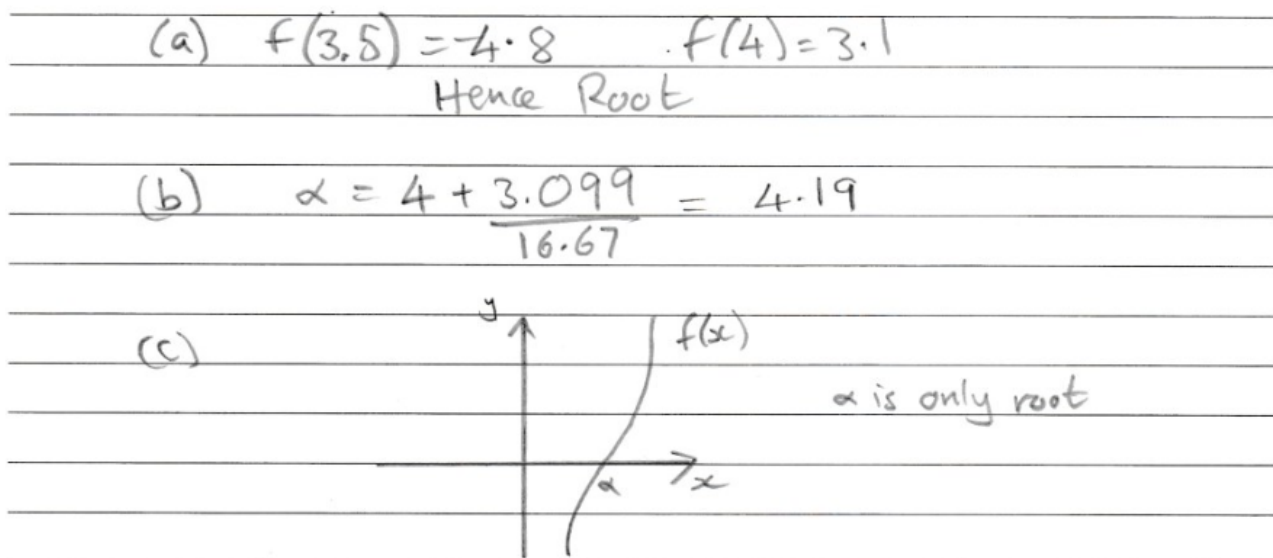 (a) f(3.5) = -4.8 f(4) = 3.1
Hence Root
(b) α = 4 + 3.099/16.67 = 4.19
(c) y f(x)
α is only root
α x